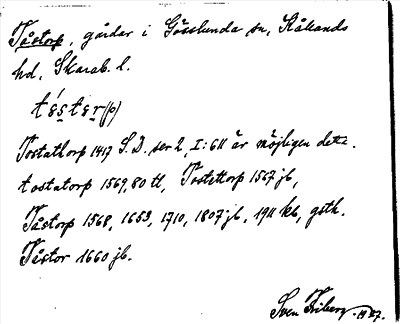 Tåstorp, gårdar i Gösslunda sn, Kållands
hd, Skarab. l.
tåster(p)
Tostatlorp 1417 S. D. ser 2, I: 611 är möjligen detta.
tostatorp 1569, 80 tl, Tostettorp 1567 jb,
Tåstorp 1568, 1653, 1710, 1807 jb, 1911 kb, gsth.
Tåstor 1660 jb.
Sven Friberg. 1927.